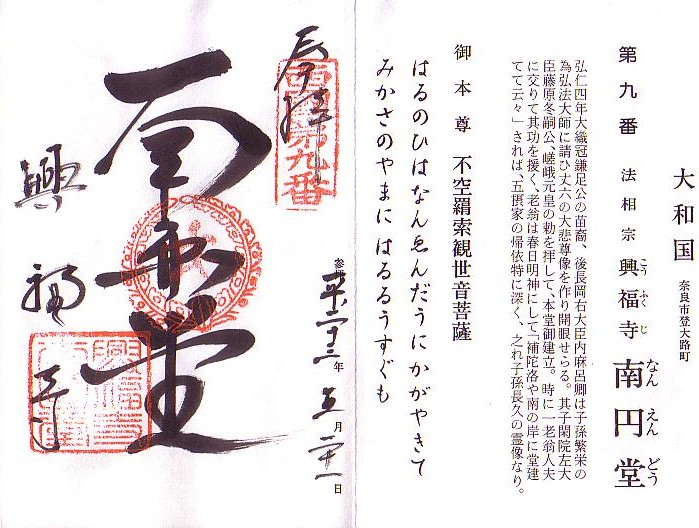 大和国
奈良市登大路町
第九番 法相宗 興福寺 南円堂
こうふくじ
なんえんどう
弘仁四年大織冠鎌足公の苗裔、後長岡右大臣内麻呂卿は子孫繁栄の
為弘法大師に請ひ丈六の大悲尊像を作り開眼せらる。其子閑院左大
臣藤原冬嗣公、嵯峨元皇の勅を拝して、本堂御建立。時に一老翁人夫
に交りて其功を援く、老翁は春日明神にして「補陀洛や南の岸に堂建
てて云々」されば、五摂家の帰依特に深く、之れ子孫長久の霊像なり。
御本尊 不空羂索観世音菩薩
はるのひはなんゑんだうにかがやきて
みかさのやまに はるるうすぐも
奉拝
西国第九番
南円堂
興福寺
参拝
平二十三年五月二十一日